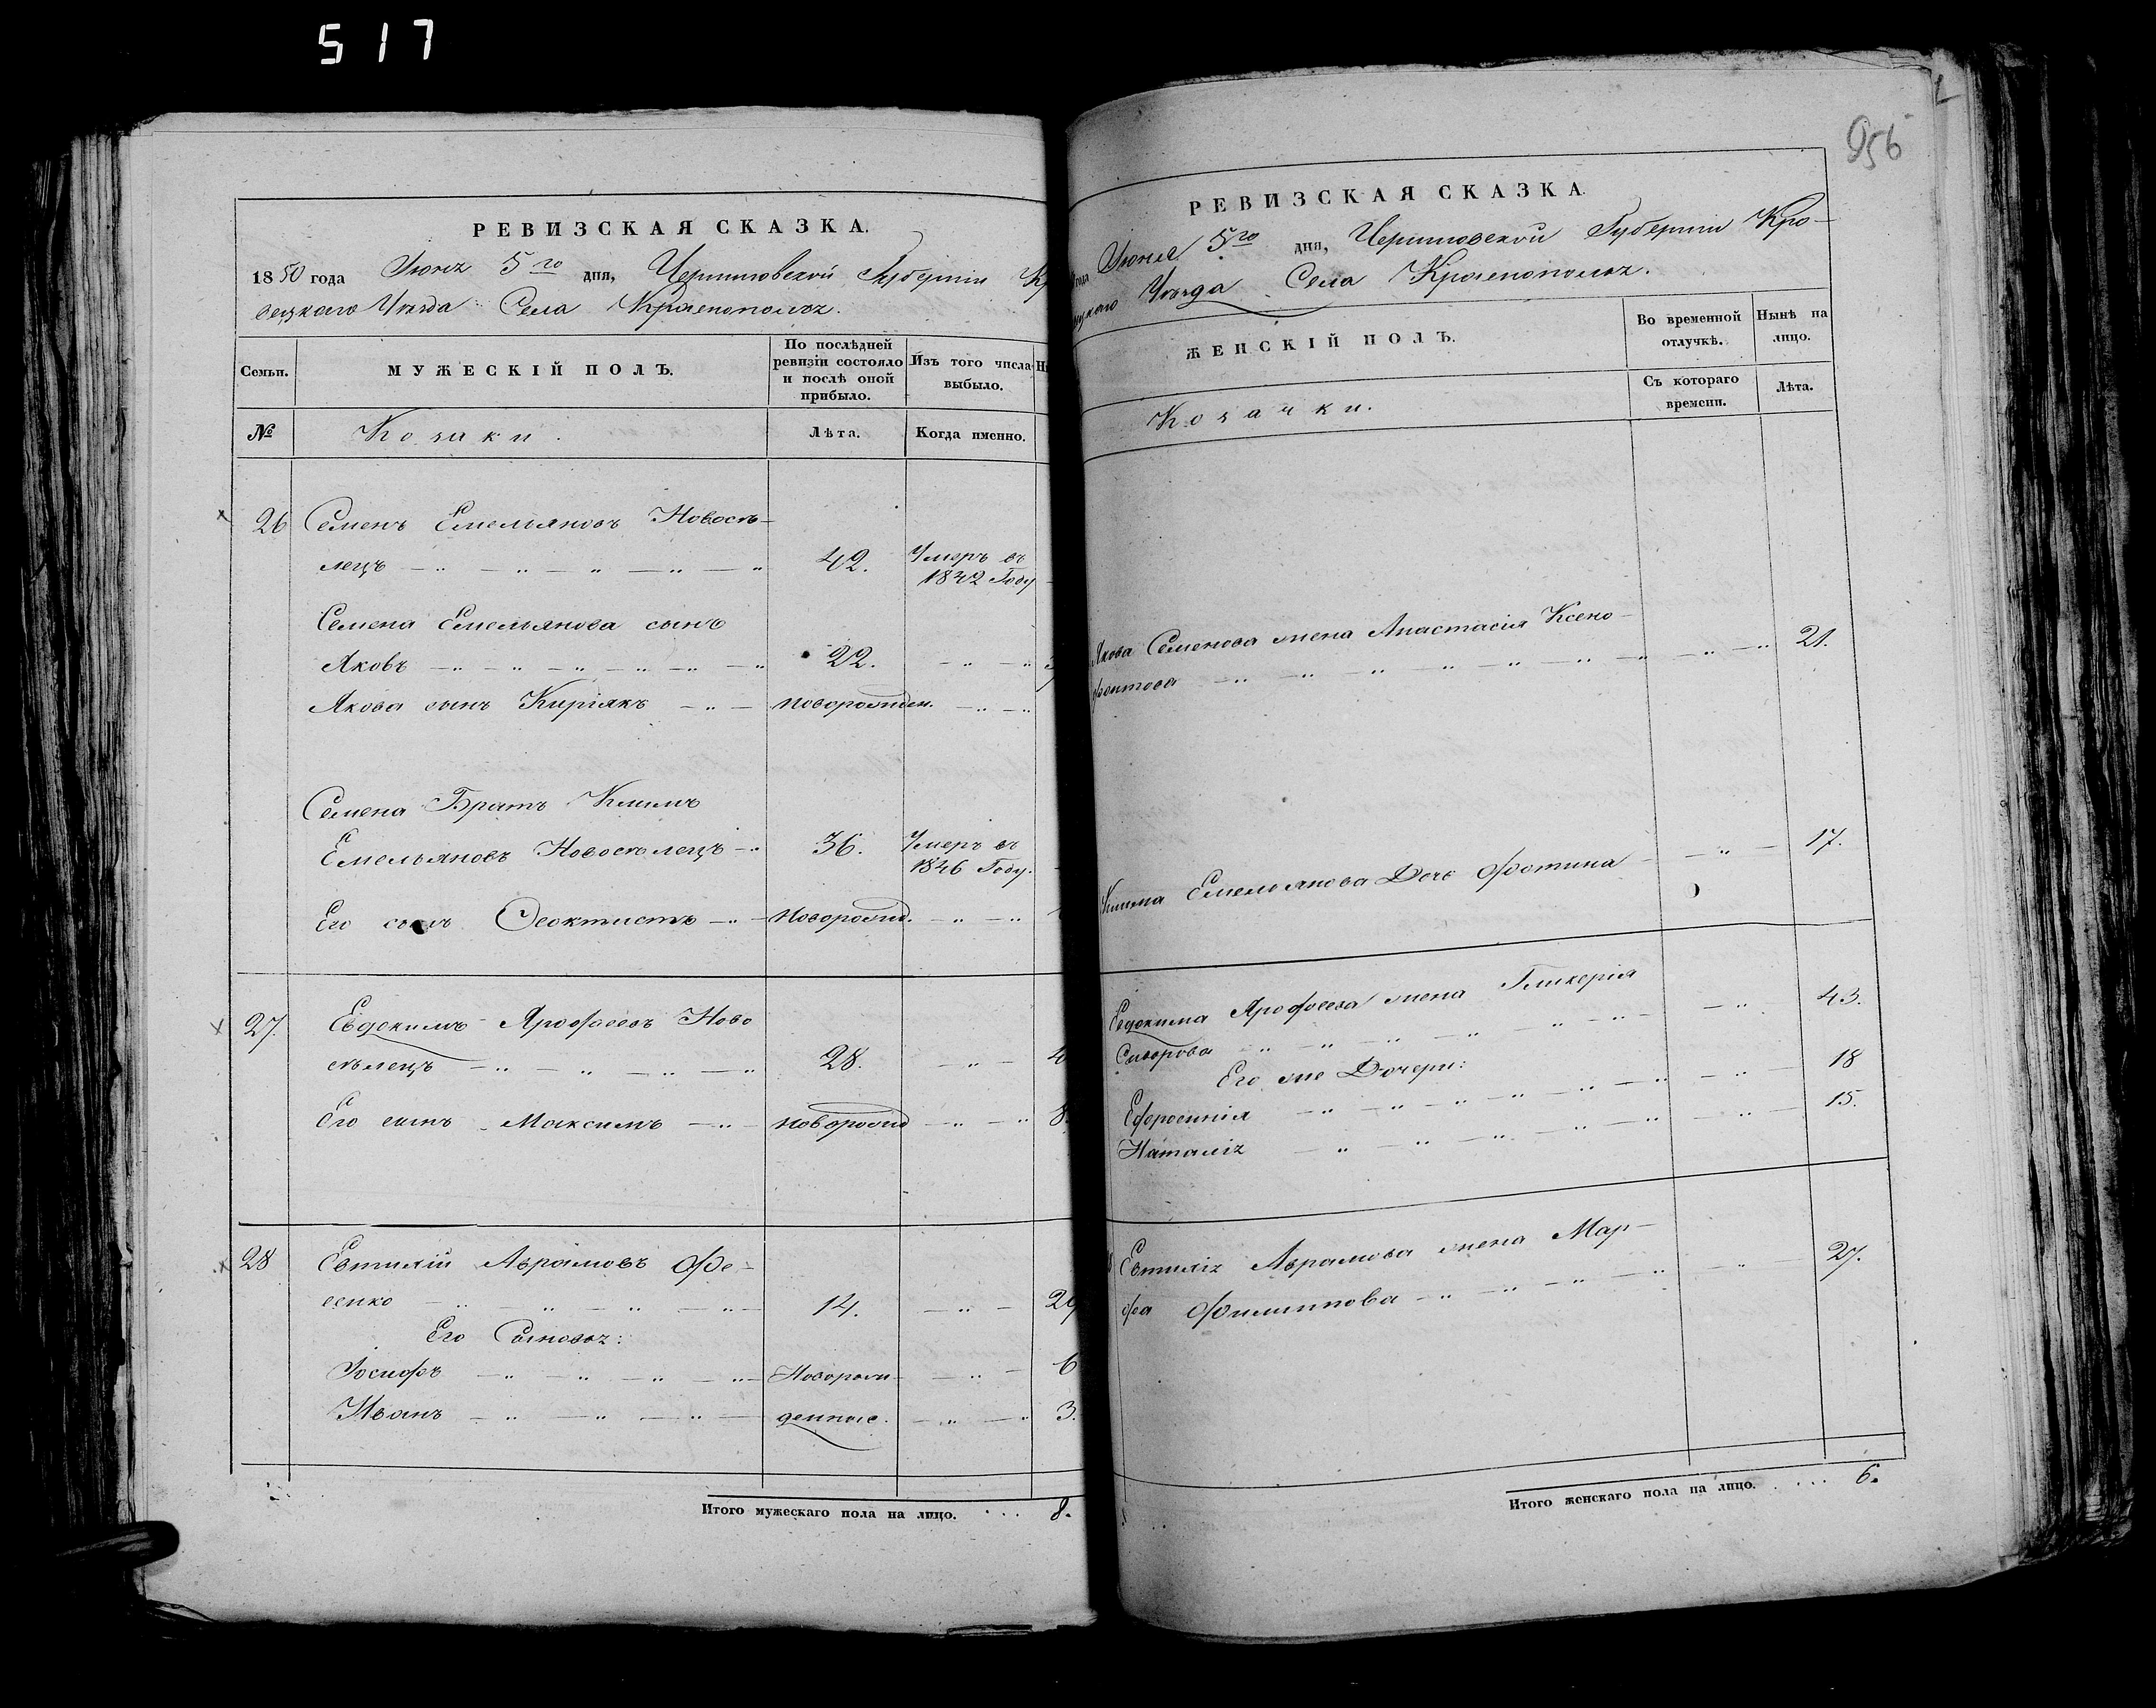 517
РЕВИЗСКАЯ СКАЗКА.
1850 года Іюня 5го дня, Черниговской Губерніи
вецкаго Уѣзда Села Краснополья.
Семьи.
МУЖЕСКІЙ ПОЛЪ.
По послѣдней ревизіи состояло и послѣ оной прибыло.
Изъ того числа выбыло.
№
Козаки.
Лѣта.
Когда именно.
26 Семенъ Емельяновъ Новосѣ-
лецъ 42. Умеръ въ 1842 Году
Семена Емельянова сынъ
Яковъ 22.
Якова сынъ Киріякъ новорожден.
Семена Братъ Климъ
Емельяновъ Новосѣлецъ 36. Умеръ въ 1846 Году.
Его сынъ Феоктистъ Новорожд.
27. Евдокимъ Ярофѣевъ Ново
сѣлецъ 28.
Его сынъ Максимъ новорожд 8.
28 Евтихій Аврамовъ Фе-
сенко 14. 29
Его Сыновья:
Іосифъ Новорож- 6
Иванъ денные. 3.
Итого мужескаго пола на лицо. . . . 8.
956
РЕВИЗСКАЯ СКАЗКА.
года Іюня 5го дня, Черниговской Губерніи Кро-
вецкаго Уѣзда Села Краснополья.
ЖЕНСКІЙ ПОЛЪ.
Во временной отлучкѣ.
Нынѣ на лицо.
Съ котораго времени.
Лѣта.
Козачки.
Якова Семенова жена Анастасія Ксено-
фонтова 21.
Клима Емельянова Дочь Фотина 17.
Евдокима Ярофѣева жена Гликерія
43.
Его же Дочери:
Ефросинія 18
Наталія 15.
Евтихія Аврамова жена Мар-
фа Филиппова 27.
Итого женскаго пола на лицо. . . . . 6.